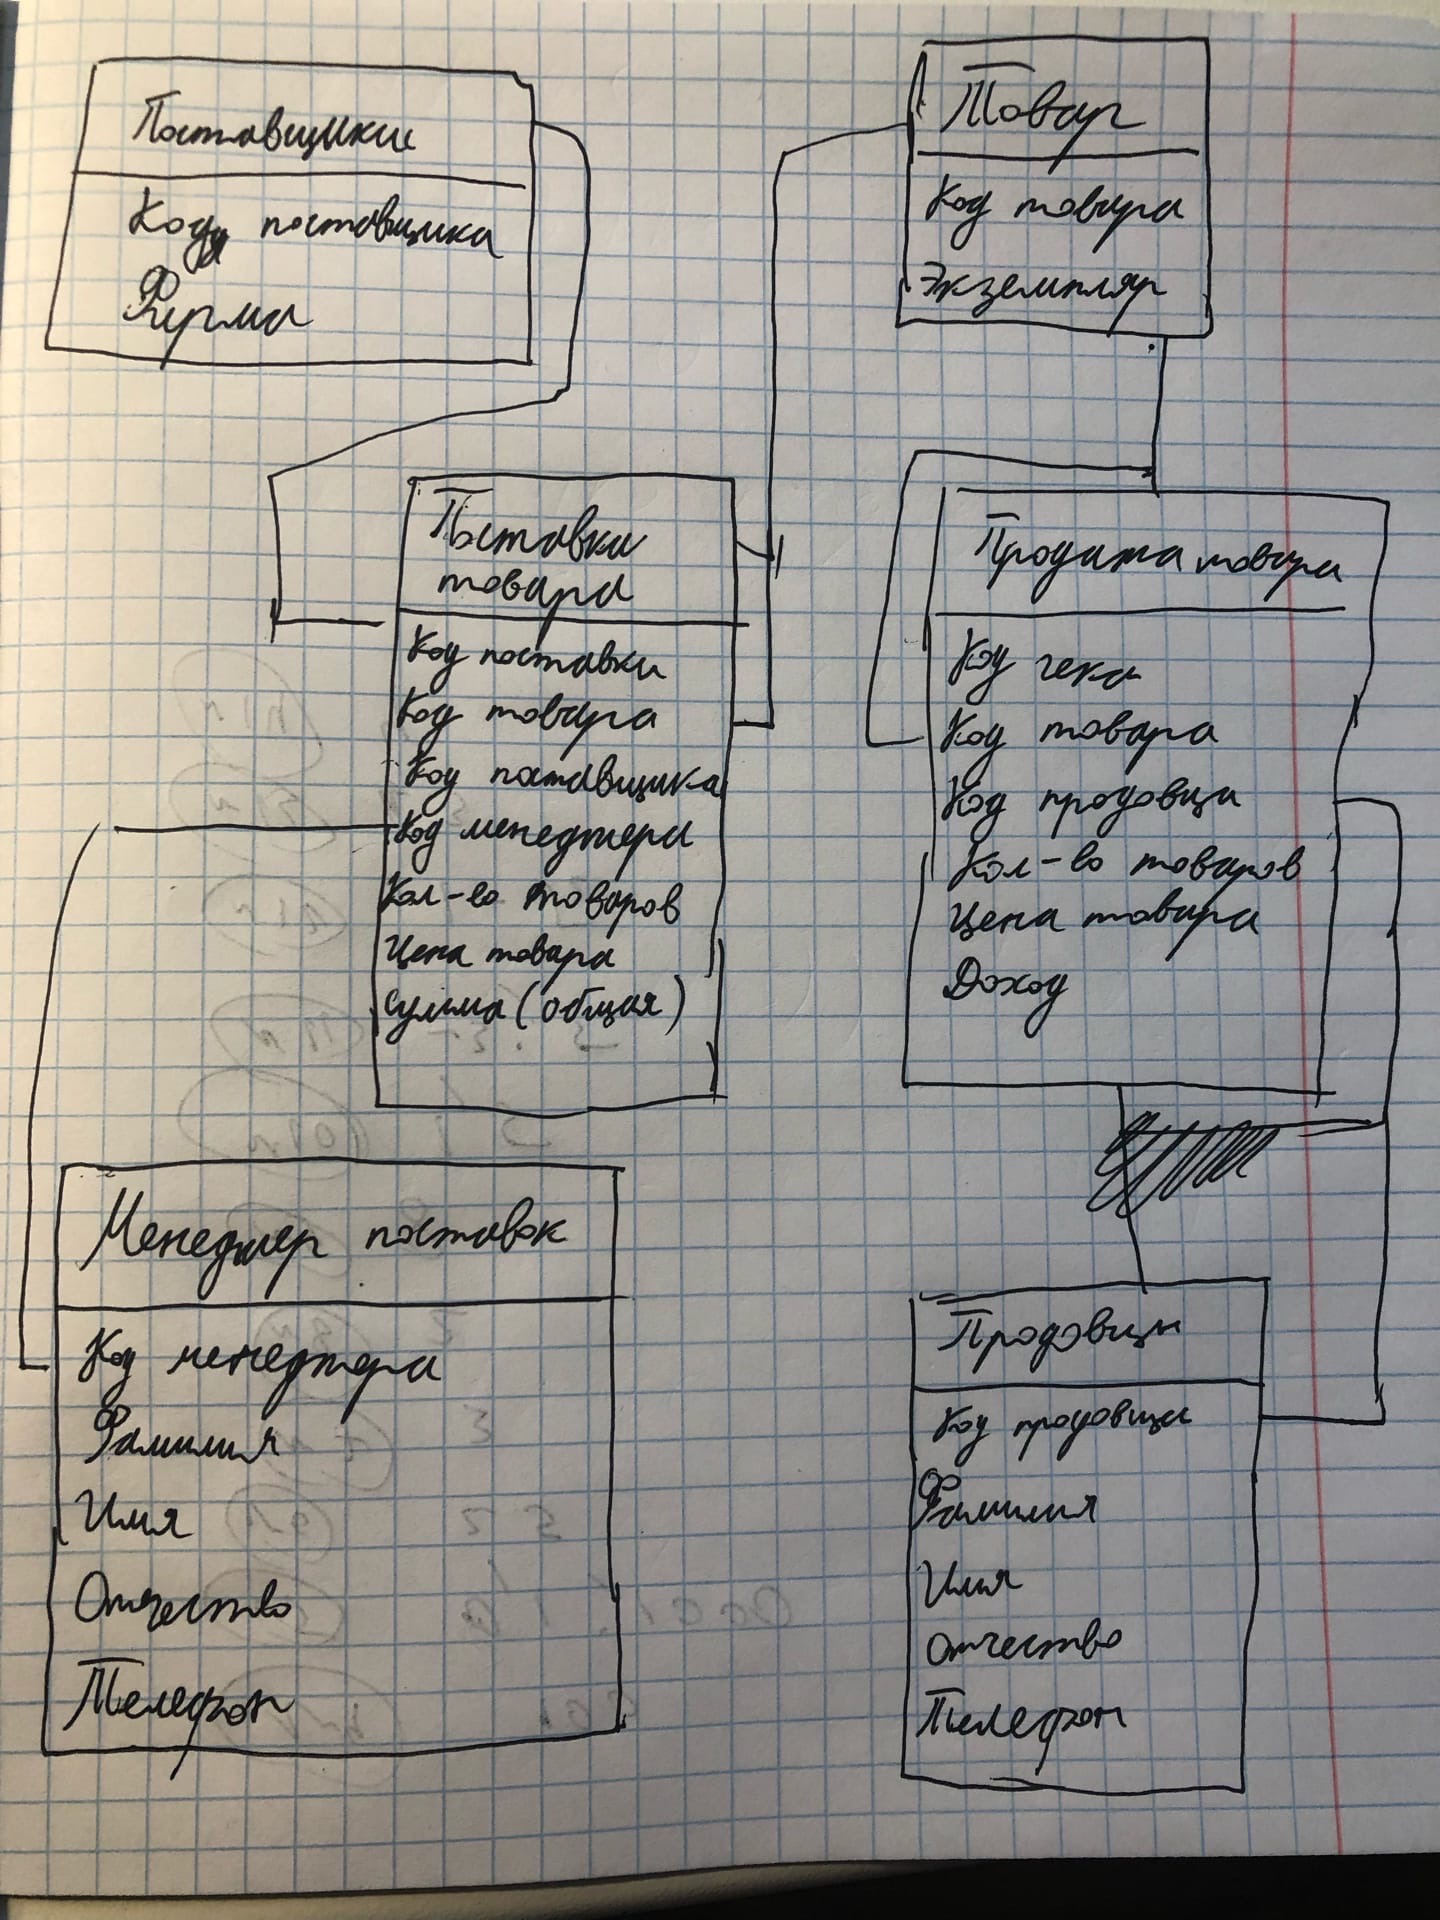 Поставщики
Код поставщика
Фирма
Товар
Код товара
Экземпляр
Поставки
товара
Код поставки
Код товара
Код поставщика
Код менеджера
Кол-во товаров
Цена товара
Сумма (общая)
Продажа товара
Код чека
Код товара
Код продовца
Кол-во товаров
Цена товара
Доход
Менеджер поставок
Код менеджера
Фамилия
Имя
Отчество
Телефон
Продовцы
Код продовца
Фамилия
Имя
Отчество
Телефон